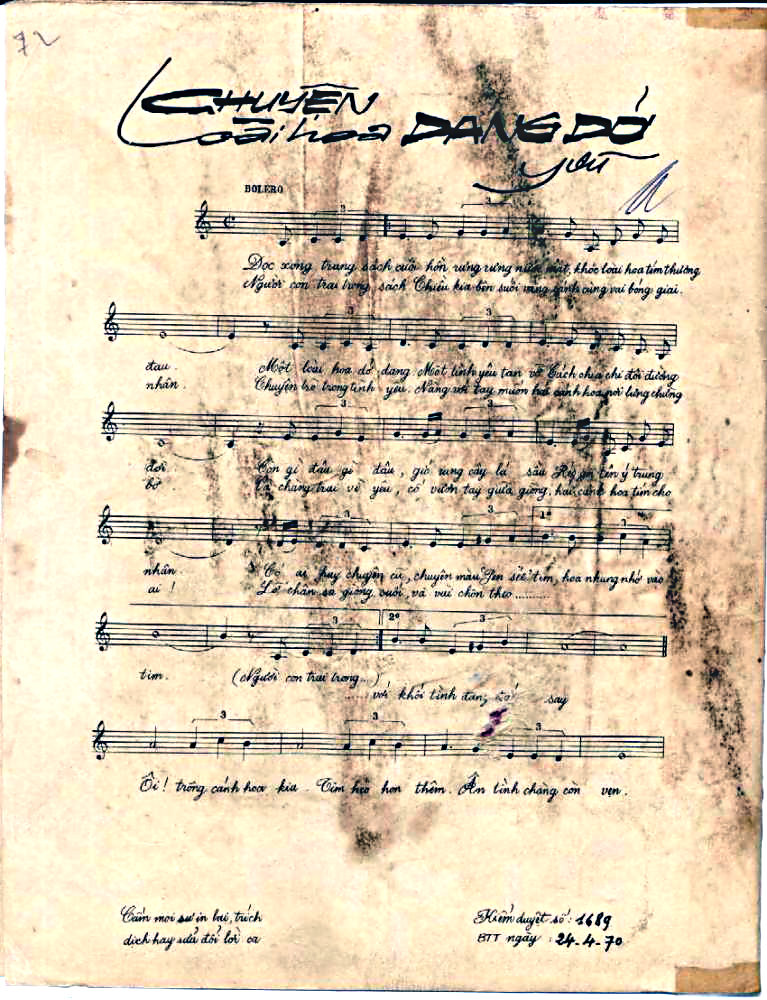 72
CHUYỆN
Loài hoa DANG DỞ
BOLERO
Đọc xong trang sách cuối hồn rưng rưng nước mắt, khóc loài hoa tím thương
Người con trai trong sách Chiều kia bên suối vắng cùng vai bóng giai.
đau. Một loài hoa dở dang. Một tình yêu tan vỡ Cách chia chi đôi đường
nhân. Chuyện trò trong tình yêu. Nàng với tay muốn hái cánh hoa nơi lưng chừng
đời Còn gì đâu gì đâu, gió rung cây lá sầu ý trung
bờ Và chàng trai vì yêu, cố vươn tay giữa giòng, hái cánh hoa tím cho
nhân. Có ai hay chuyện cũ, chuyện màu "Pen sée" tím, hoa nhung nhớ vào
ai ! Lỡ chân sa giòng suối, và vùi chôn theo..........
1º
2º
tim. (Người con trai trong...)
......với khối tình đang say
Ôi ! trông cánh hoa kia Tim héo hon thêm. Ân tình chẳng còn vẹn.
Cấm mọi sự in lại, trích
dịch hay sửa đổi lời ca
Kiểm duyệt số : 1689
BTT ngày : 24-4-70